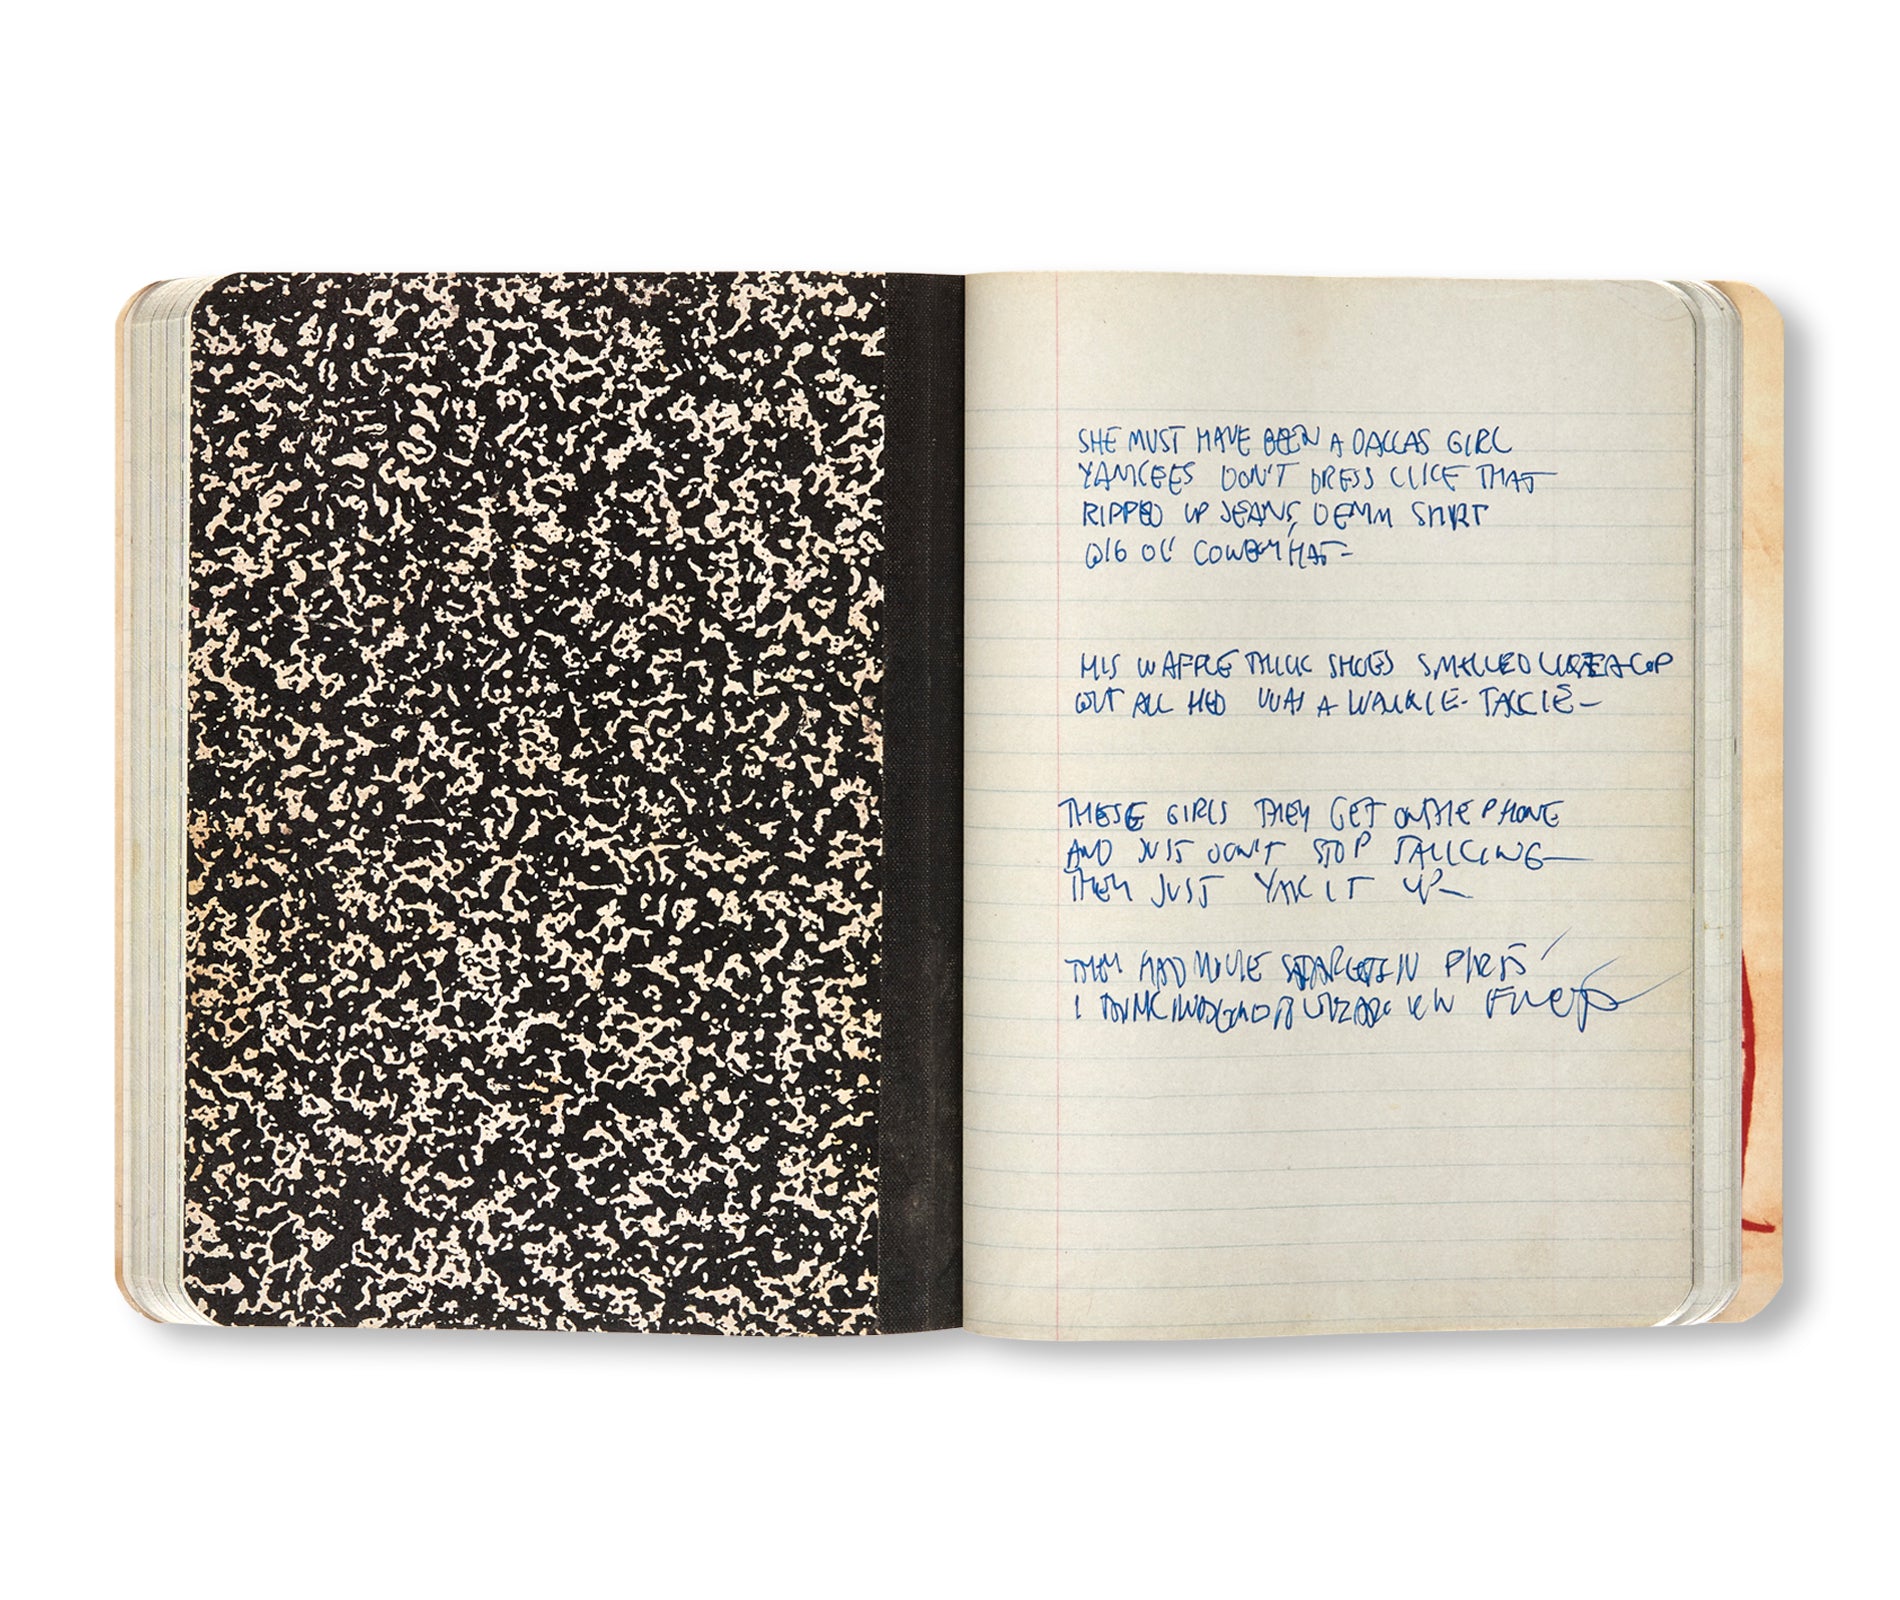 SHE MUST HAVE BEEN A DALLAS GIRL
YANKEES DON'T DRESS LIKE THAT
RIPPED UP JEANS, DENIM SHIRT
BIG OL' COWBOY HAT—
HIS WAFFLE THICK SHOES SMELLED LIKE A COP
BUT ALL HED WAS A WALKIE-TALKIE—
THESE GIRLS THEY GET ON THE PHONE
AND JUST DON'T STOP TALKING—
THEY JUST YAK IT UP—
THEY HAD MOVIE STARS IN PARIS
I THINK